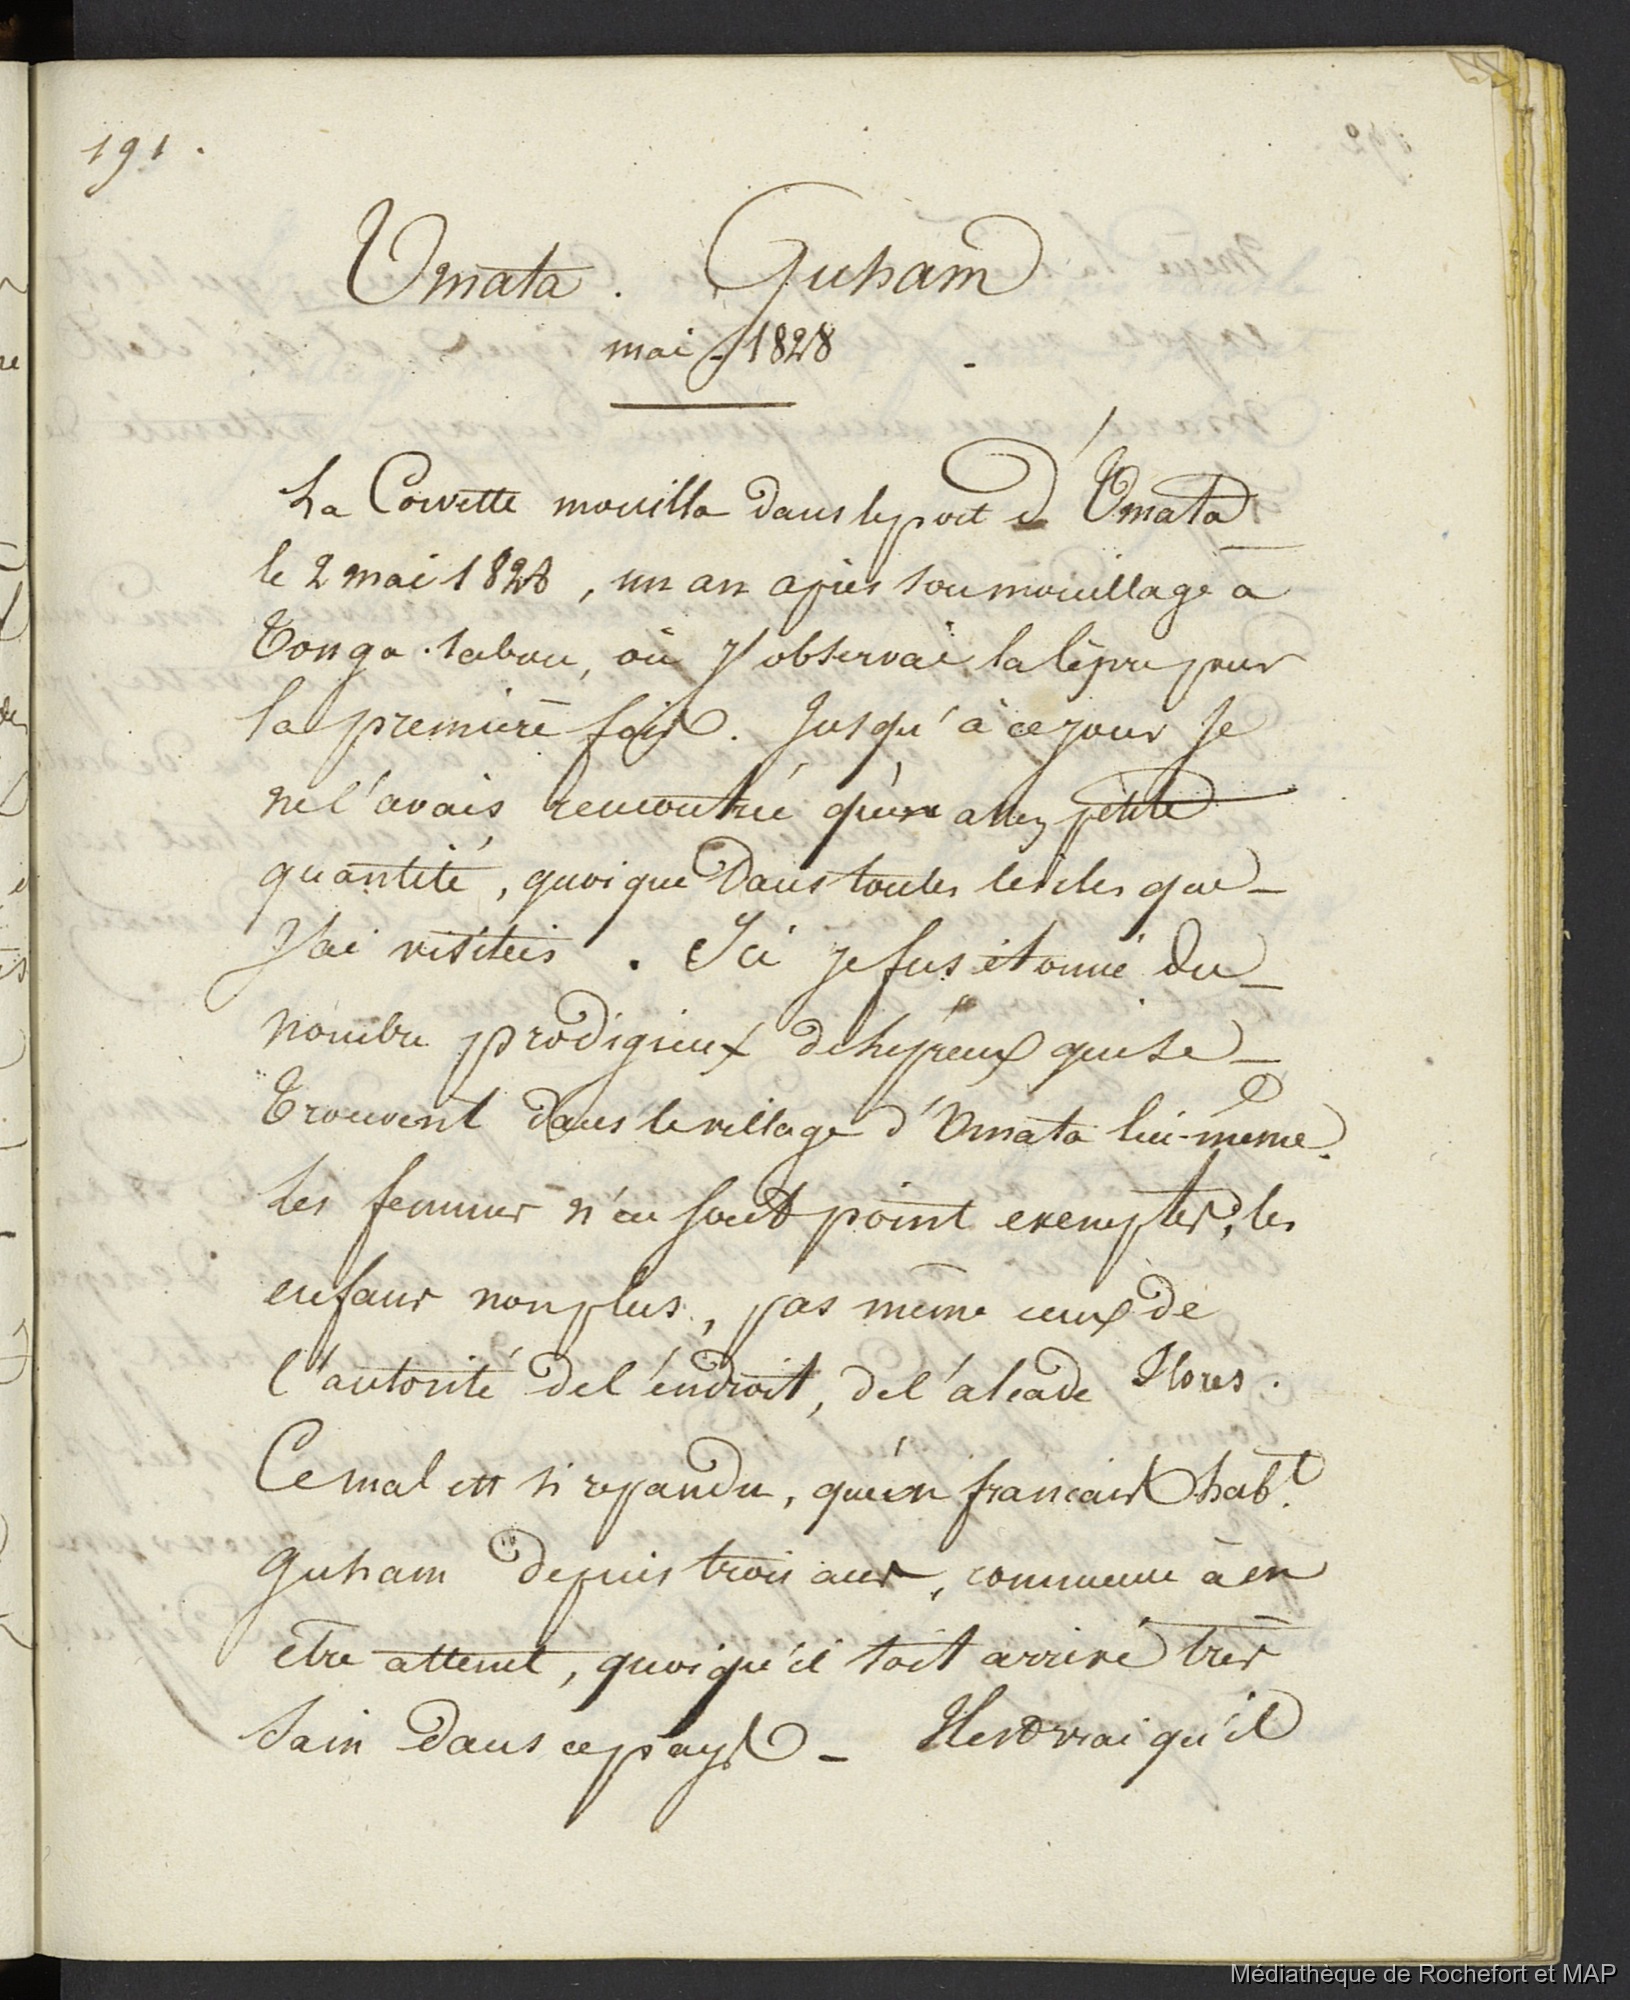 191.
Umata. Guham
mai - 1828
La Corvette mouilla dans le port d'Umata
le 2 mai 1828, un an après son mouillage a
Tonga-tabou, où j'observai la lèpre pour
la premiere fois. Jusqu'à ce jour je
ne l'avais rencontrée qu'en assez petite
quantité, quoique dans toutes les iles que
j'ai visitéis. Ici je fus étonné du
nombre prodigieux de lépreux qui se
trouvent dans le village d'Umata lui-même.
Les femmes n'en sont point exemptes, les
enfans non plus, pas même ceux de
l'autorité de l'endroit, de l'alcade Flores.
Ce mal est si repandu, qu'un francais habt.
Guham depuis trois ans, commence à en
être atteint, quoiqu'il soit arrivé très
sain dans ce pays - Il est vrai qu'il
Médiathèque de Rochefort et MAP